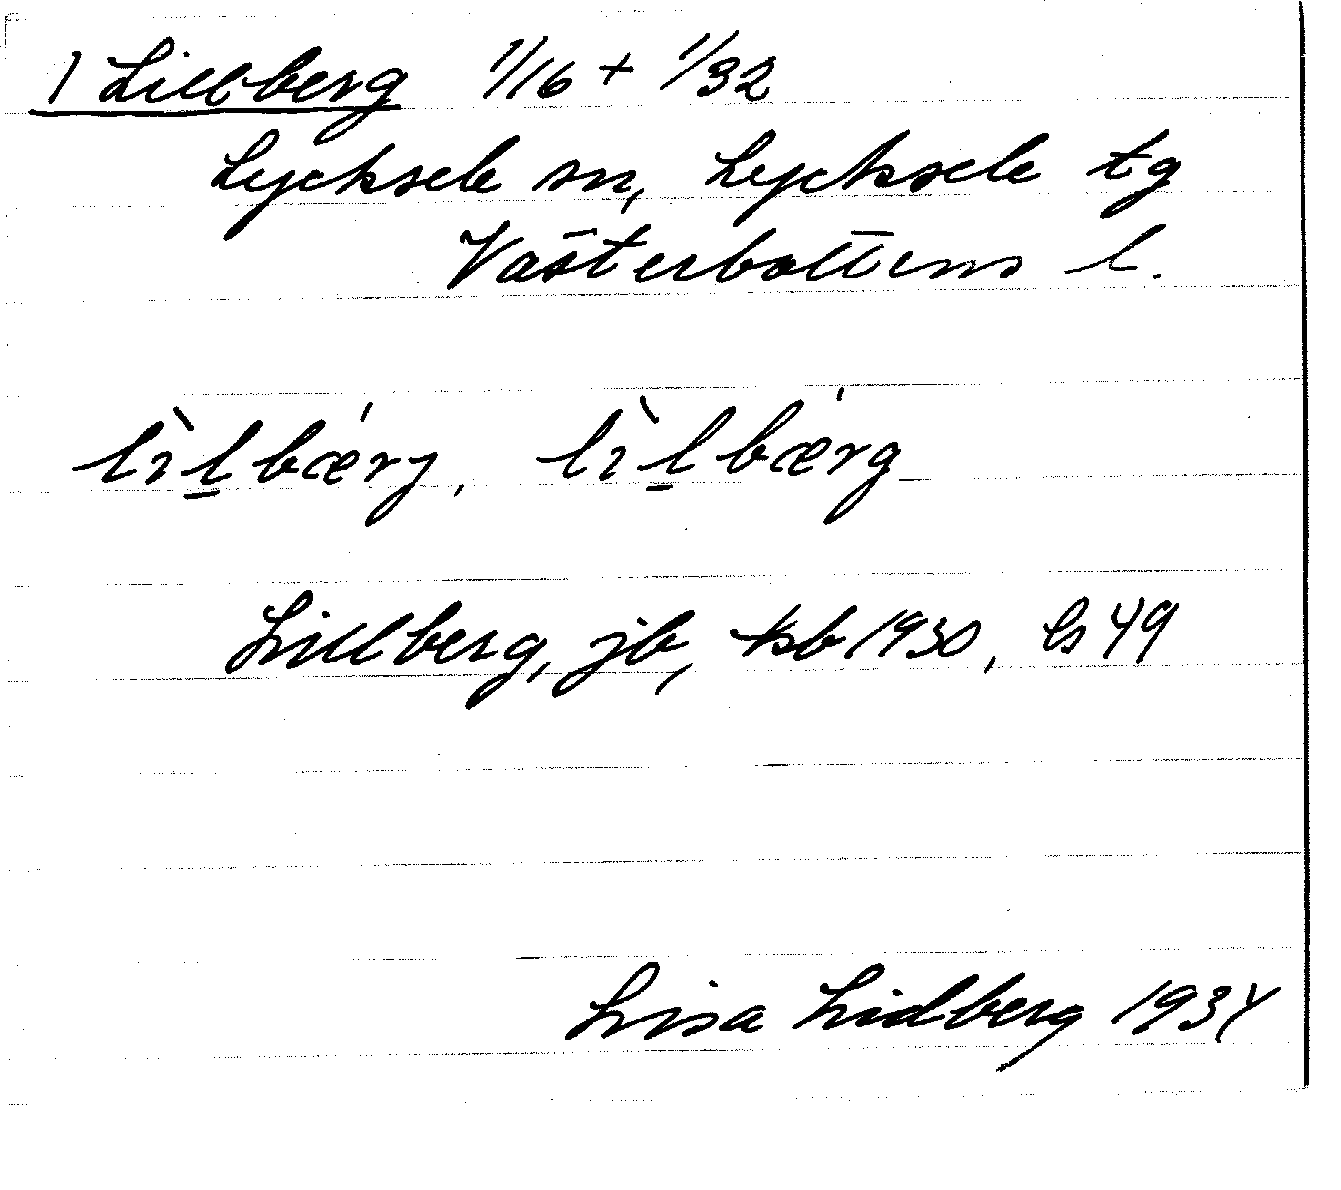 1 Lillberg 1/16 + 1/32
Lycksele sn, Lycksele tg
Västerbottens l.
lìl̠bǽrj, lìl̠bǽrg
Lillberg, jb, ksb 1930, bs 49
Lisa Lidberg 1934